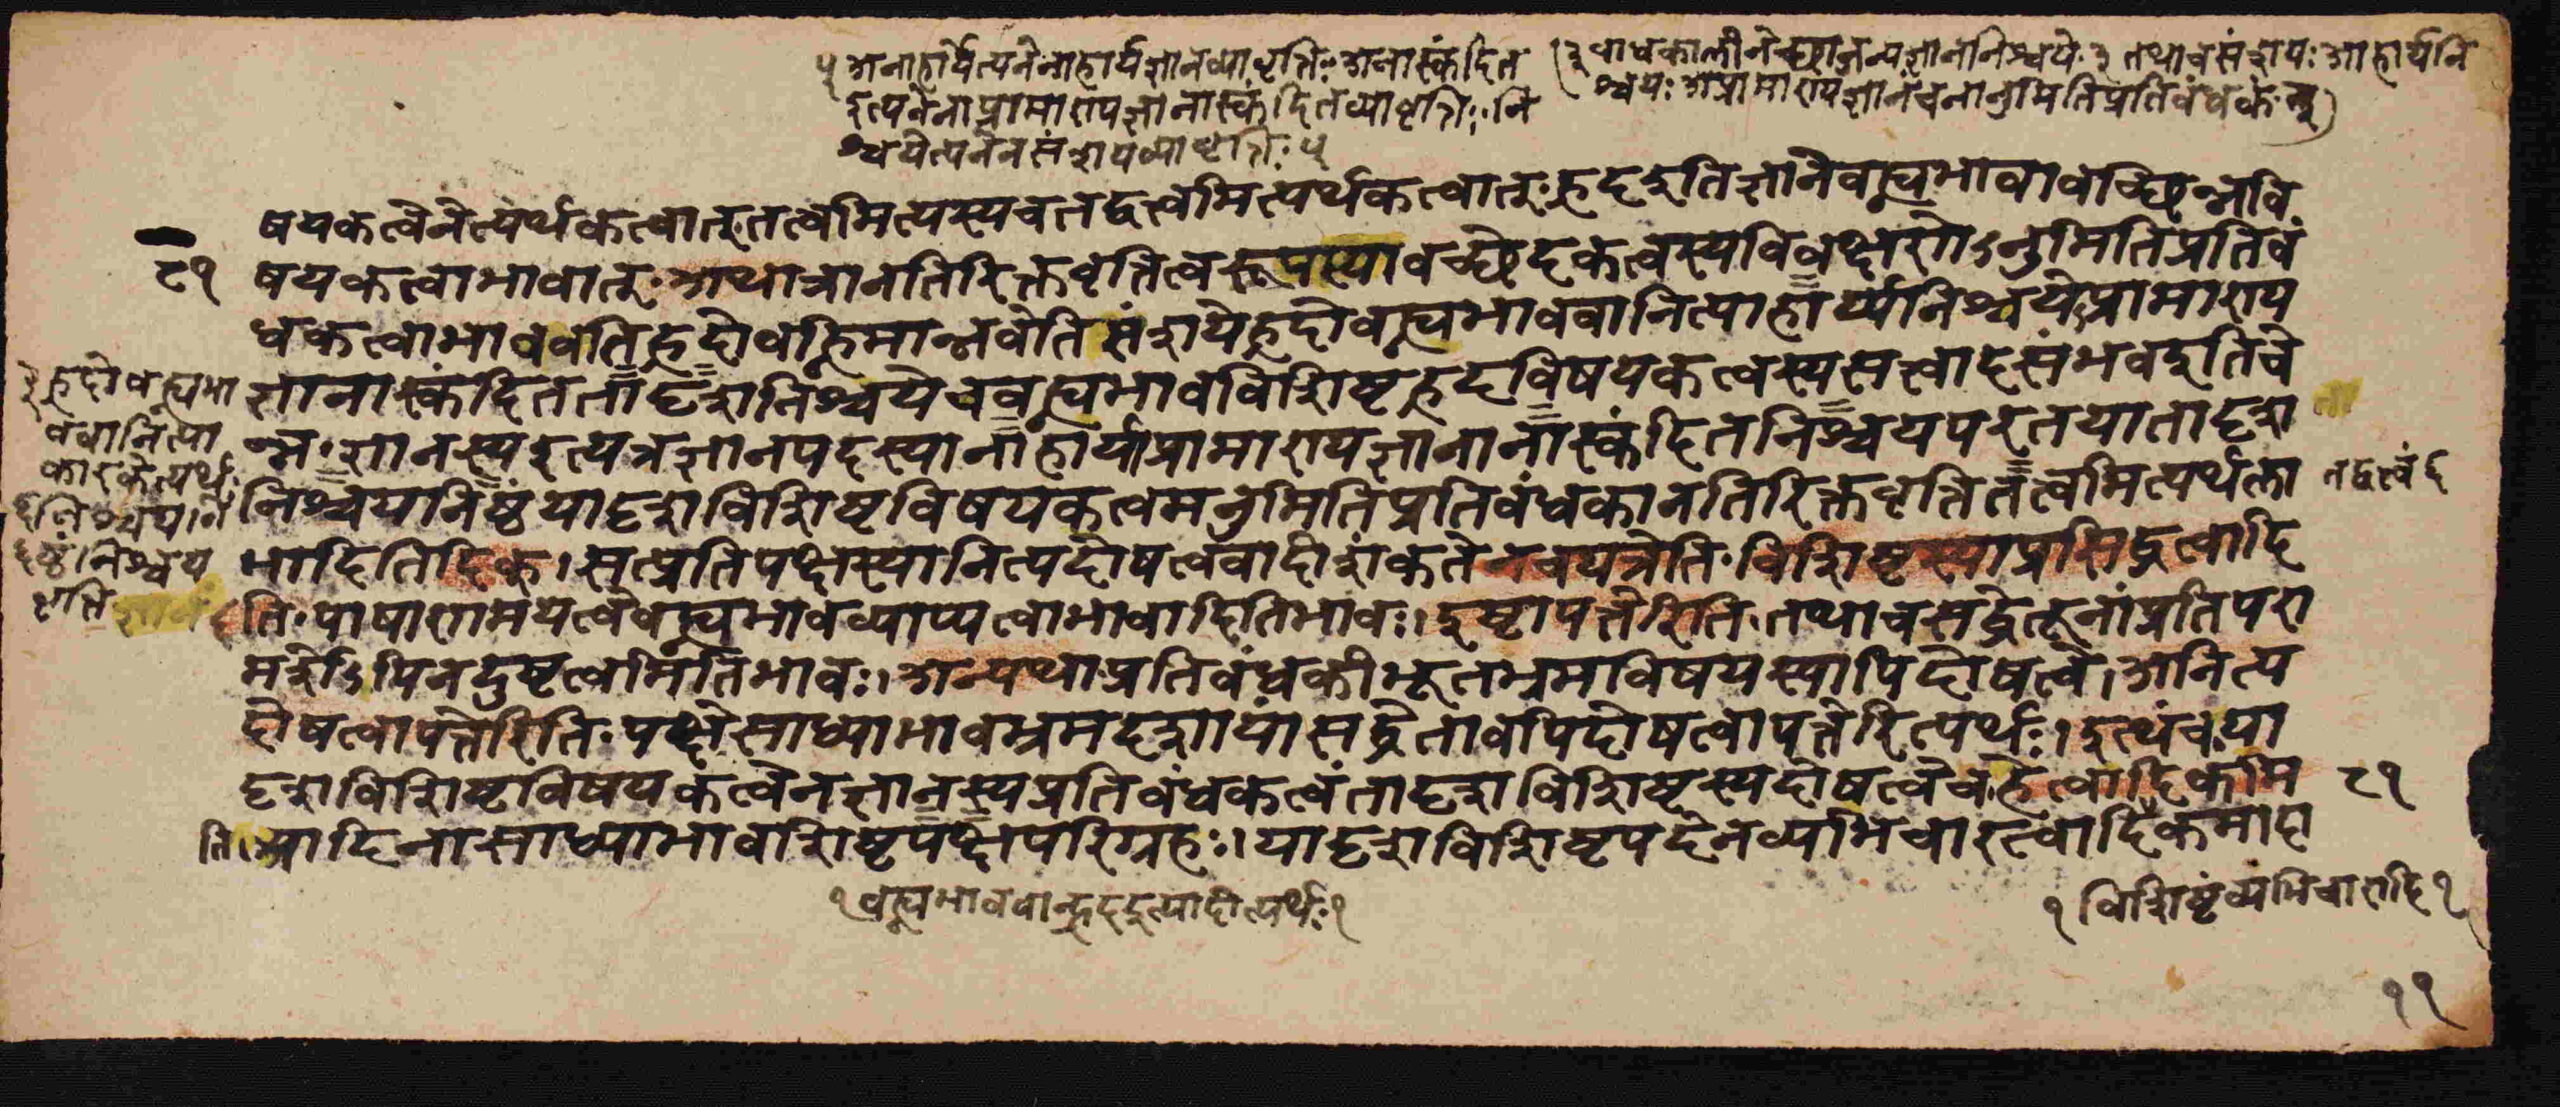 ५ अनाहार्येत्यनेनाहार्यज्ञानव्यावृत्तिः अनास्कंदित
इत्यनेनाप्रामाण्यज्ञानास्कंदितव्यावृत्तिः नि
श्चयेत्यनेन संशयव्यावृत्तिः ५
३ बाधकालीनेच्छाजन्यज्ञाननिश्चये ३ तथाच संशयः आहार्यनि
श्चयः अप्रामाण्यज्ञानं च नानुमितिप्रतिबंधकं
षयकत्वेनेत्यर्थकत्वात् तत्त्वमित्यस्य च तद्वत्त्वमित्यर्थकत्वात् ह्रद इति ज्ञाने वह्न्यभावावच्छिन्नवि
८१ षयकत्वाभावात् अथात्रानतिरिक्तवृत्तित्वरूपस्यावच्छेदकत्वस्य विवक्षणेऽनुमितिप्रतिबं
धकत्वाभाववति ह्रदो वह्निमान्नवेति संशये ह्रदो वह्न्यभाववानित्याहार्य्यनिश्चयेऽप्रामाण्य
ज्ञानास्कंदिततादृशनिश्चये च वह्न्यभावविशिष्टह्रदविषयकत्वस्य सत्त्वादसंभव इति चे
न्न ज्ञानस्य इत्यत्र ज्ञानपदस्यानाहार्याप्रामाण्यज्ञानानास्कंदितनिश्चयपरतया तादृश
निश्चयनिष्ठं यादृशविशिष्टविषयकत्वमनुमितिप्रतिबंधकानतिरिक्तवृत्ति तत्त्वमित्यर्थला
भादिति दिक् । सत्प्रतिपक्षस्यानित्यदोषत्ववादी शंकते नचयत्रेति विशिष्टस्याप्रसिद्धत्वादि
ति पाषाणमयत्वे वह्न्यभावव्याप्यत्वाभावादिति भावः । इष्टापत्तेरिति तथाच सद्धेतूनां प्रतिपरा
मर्शेऽपि न दुष्टत्वमिति भावः । अन्यथा प्रतिबंधकीभूतभ्रमविषयस्यापि दोषत्वे । अनित्य
दोषत्वापत्तेरिति पक्षे साध्याभावभ्रमदशायां सद्धेतावपि दोषत्वापत्तेरित्यर्थः । इत्थं च या
दृशविशिष्टविषयकत्वेन ज्ञानस्य प्रतिबंधकत्वं तादृशविशिष्टस्य दोषत्वे च हेत्वादिकमि
ति आदिना साध्याभावविशिष्टपक्षपरिग्रहः । यादृशविशिष्टपदेन व्यभिचारत्वादिकमादा
३ ह्रदो वह्न्यभा
ववानित्या
कारकेत्यर्थः
निश्चयनि
ष्ठं निश्चय
वृत्ति
तद्वत्त्वं
८१
१ वह्न्यभाववान्ह्रद इत्यादीत्यर्थः १
१ विशिष्टं व्यभिचारादि १
११